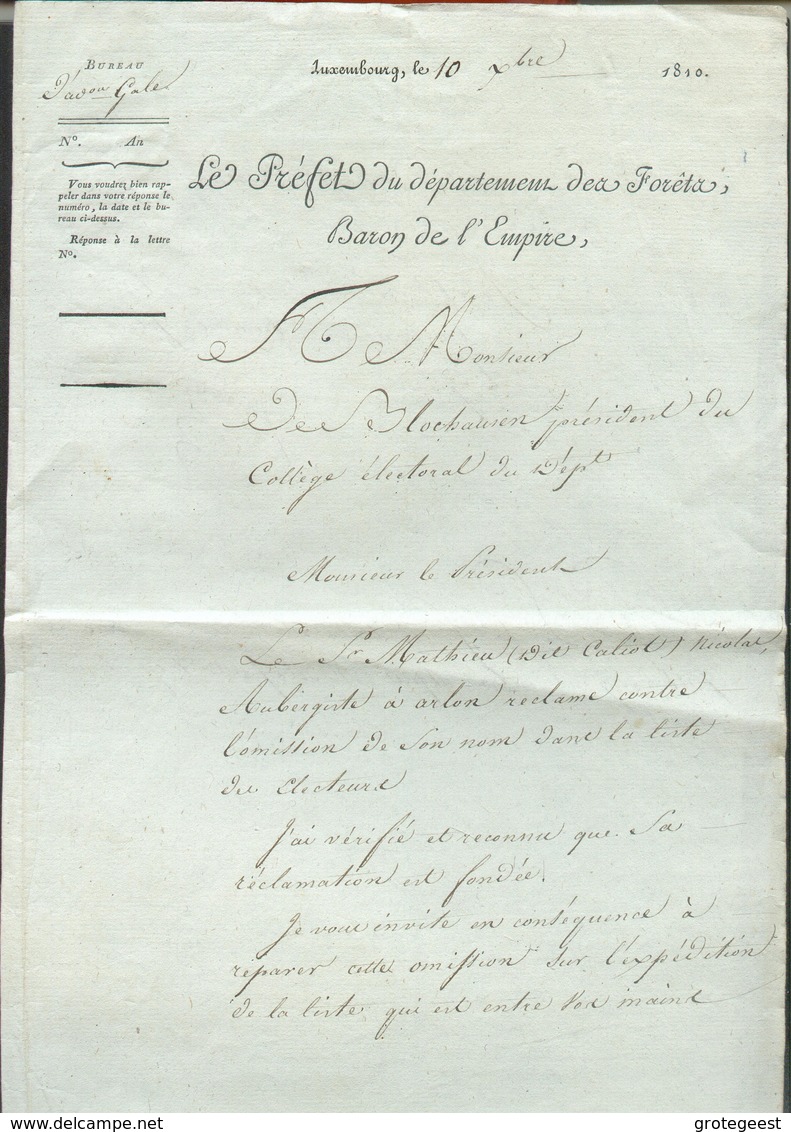 BUREAU
D'adon Gale
N°. An
Vous voudrez bien rap-
peler dans votre réponse le
numéro, la date et le bu-
reau ci-dessus.
Réponse à la lettre
N°.
Luxembourg, le 10 xbre 1810.
Le Préfet du département des Forêts,
Baron de l'Empire,
A Monsieur
De Blochausen président du
Collège électoral du Dépt
Monsieur le Président
Le Sr Mathieu (dit Caliot) Nicolas,
Aubergiste à arlon reclame contre
l'omission de Son nom dans la liste
des Electeurs
J'ai vérifié et reconnu que Sa
réclamation est fondée.
Je vous invite en conséquence à
réparer cette omission Sur l'expédition
de la liste qui est entre Vos mains
delcampe.net
grotegeest